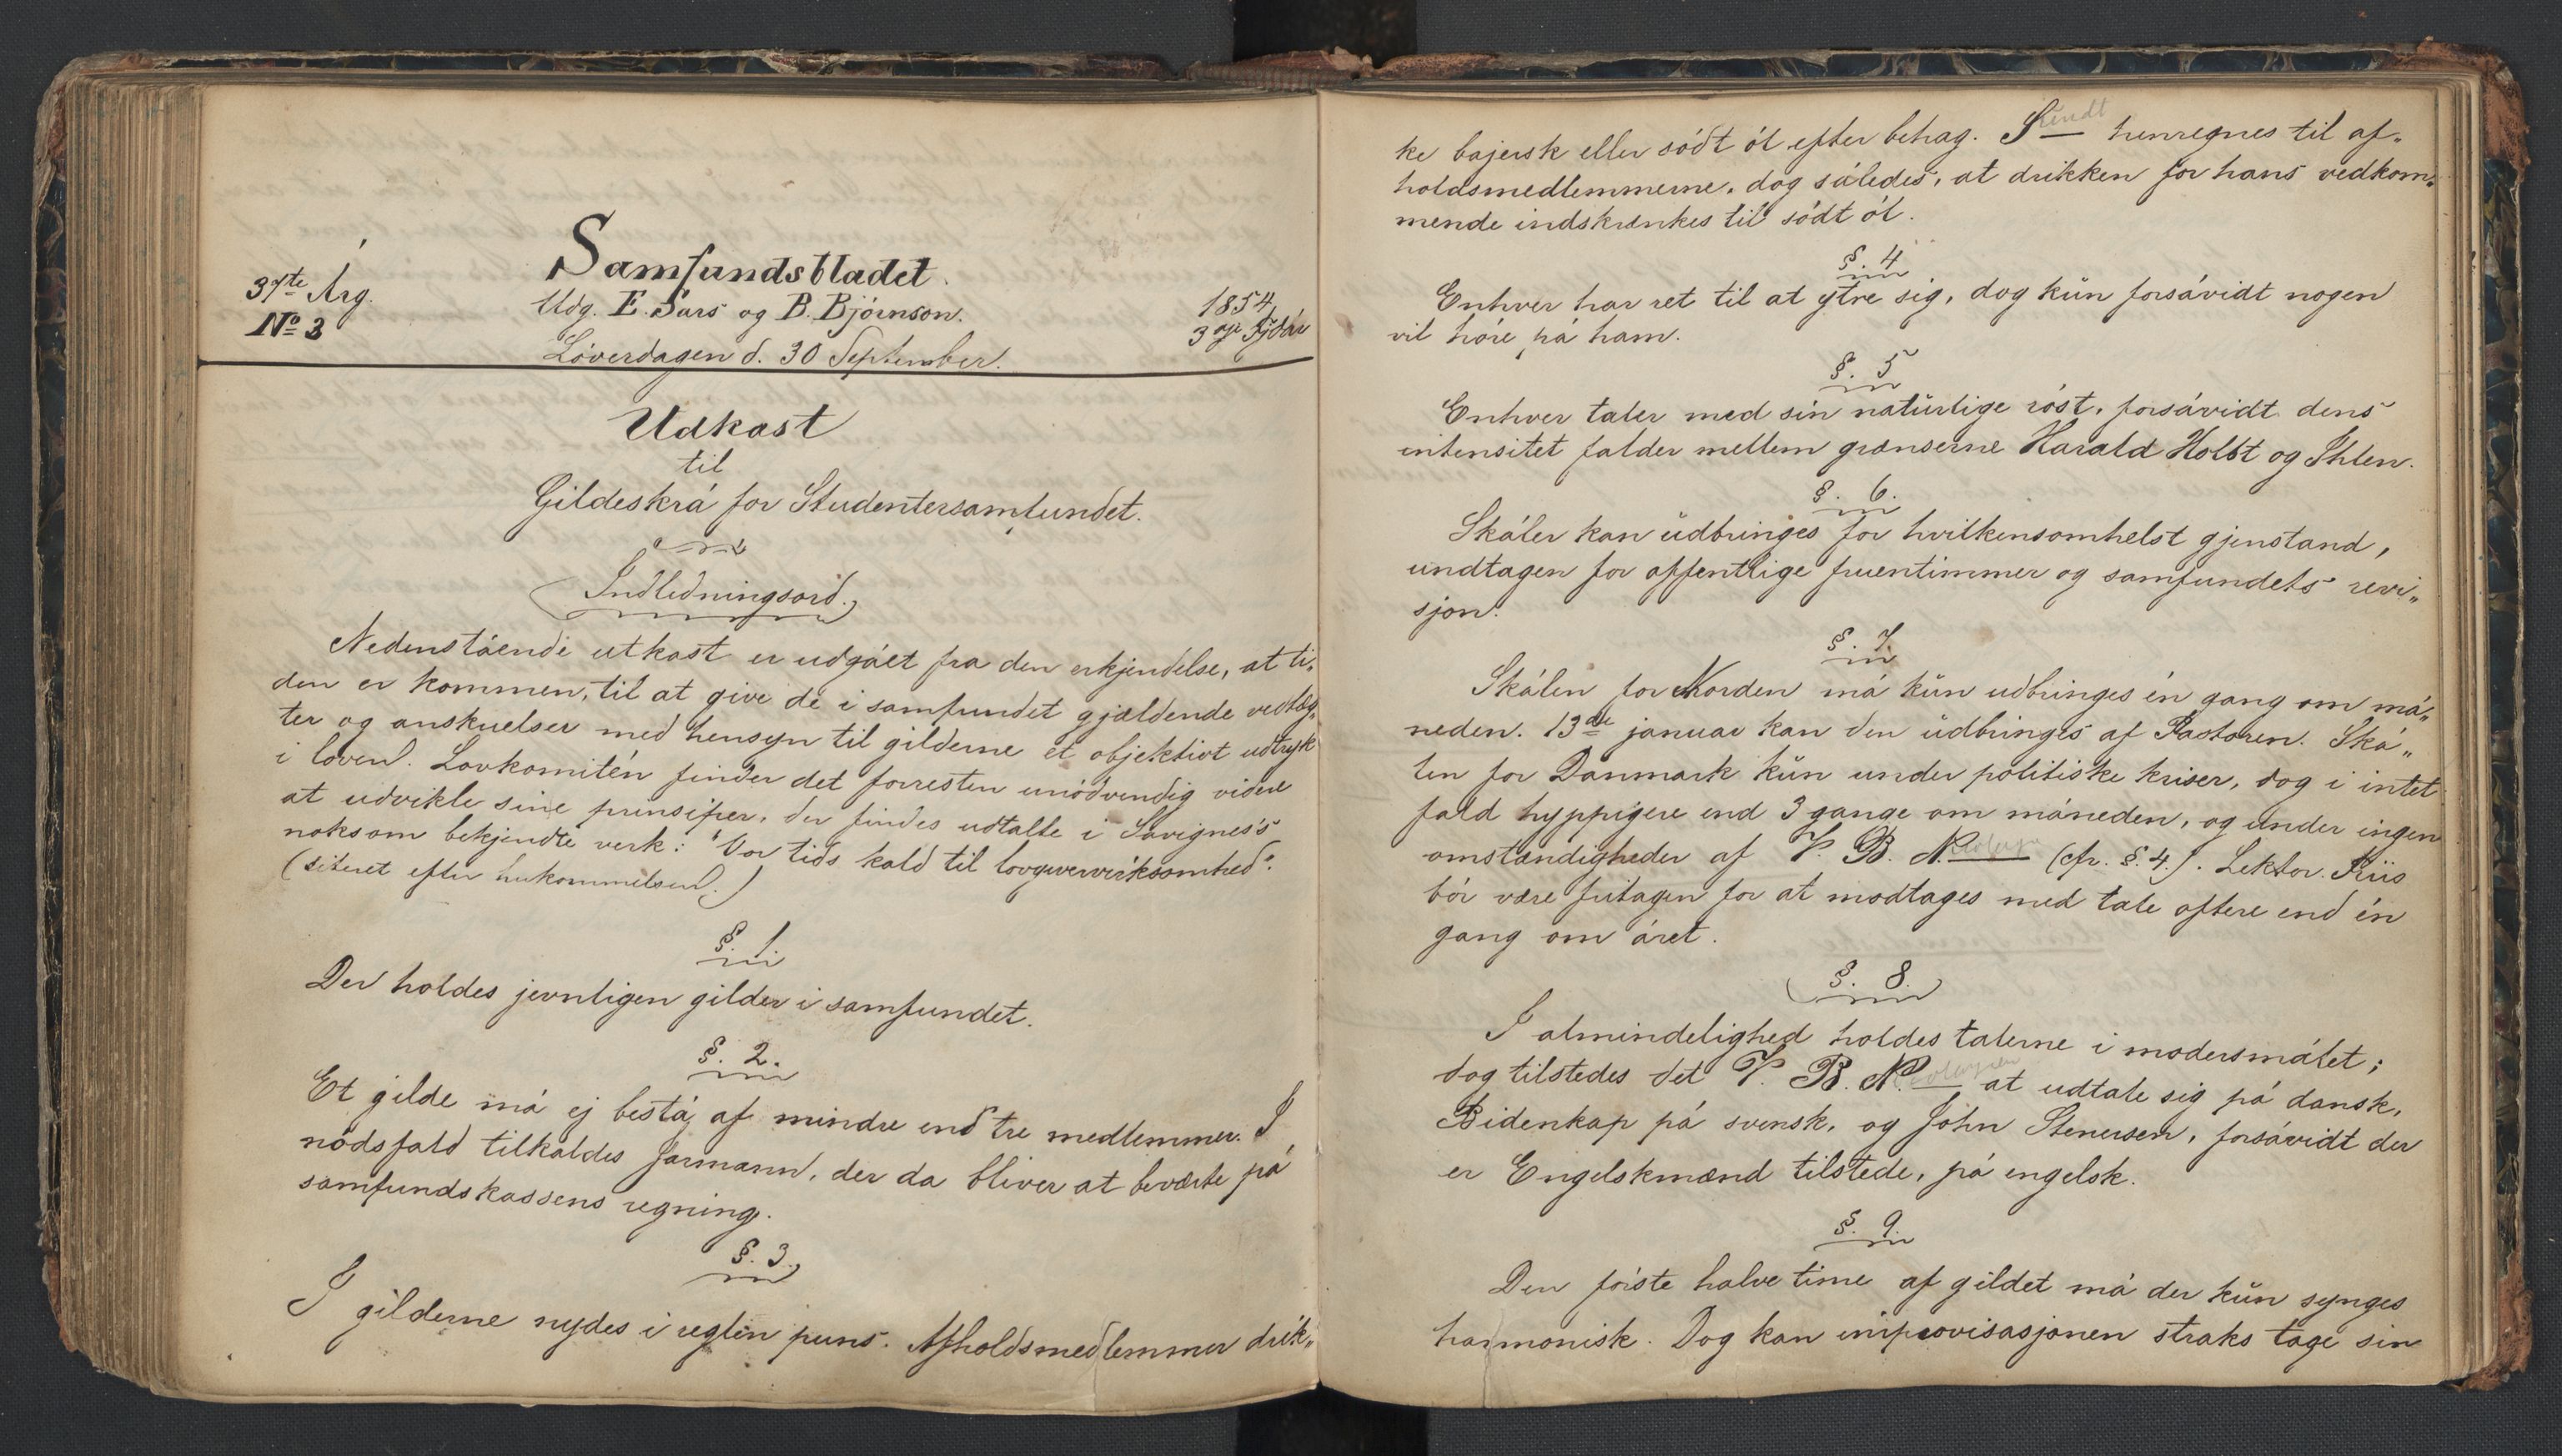 Samfundsbladet.
37te Árg.
No 3
Udg. E. Sars og B. Bjórnson.
1854
3
Lóverdagen d. 30 September.
Udkast
til
Gildeskrá for Studentersamfundet.
Indledningsord.
Nedenstáende utkast er udgáet fra den erkjendelse, at ti„
den er kommen, til at give de i samfundet gjældende vedtæg„
ter og anskuelser med hensyn til gilderne et objektivt udtryk
i loven. Lovkomitén finder det forresten unódvendig videre
at udvikle sine prinsiper, der findes udtalte i Savignes's
noksom bekjendte verk: "Vor tids kald til lovgivervirksomhed".
(siteret efter hukommelsen.)
§. 1.
Der holdes jevnligen gilder i samfundet.
§. 2.
Et gilde má ej bestá af mindre end tre medlemmer. I
nódsfald tilkaldes Jarmann, der da bliver at beværte pá
samfundskassens regning.
§. 3.
I gilderne nydes i reglen puns. Afholdsmedlemmer drik„
ke bajersk eller sódt ól efter behag. S henregnes til af„
holdsmedlemmerne, dog sáledes, at drikken for hans vedkom„
mende indskrænkes til sódt ól.
§. 4
Enhver har ret til at ytre sig, dog kŭn forsávidt nogen
vil hóre pá ham.
§. 5
Enhver taler med sin natŭrlige róst, forsávidt dens
intensitet falder mellem grænserne Harald Holst og Ihlen.
§. 6.
Skáler kan ŭdbringes for hvilkensomhelst gjenstand,
undtagen for offentlige fruentimmer og samfundets revi„
sjon.
§. 7.
Skálen for Norden má kŭn udbringes én gang om má„
neden. 13de januar kan den ŭdbringes af Pastoren. Ská„
len for Danmark kŭn under politiske kriser, dog i intet
fald hyppigere end 3 gange om máneden, og under ingen
omstændigheder af V. B. N. (cfr. §. 4.). Lektor Riis
bór være fritagen for at modtages med tale oftere end én
gang om áret.
§. 8.
I almindelighed holdes talerne i modersmálet;
dog tilstedes det V. B. N. at udtale sig pá dansk,
Bidenkap pá svensk, og John Stenersen, forsávidt der
er Engelskmænd tilstede, pá engelsk.
§. 9.
Den fórste halve time af gildet má der kŭn synges
harmonisk. Dog kan improvisasjonen straks tage sin